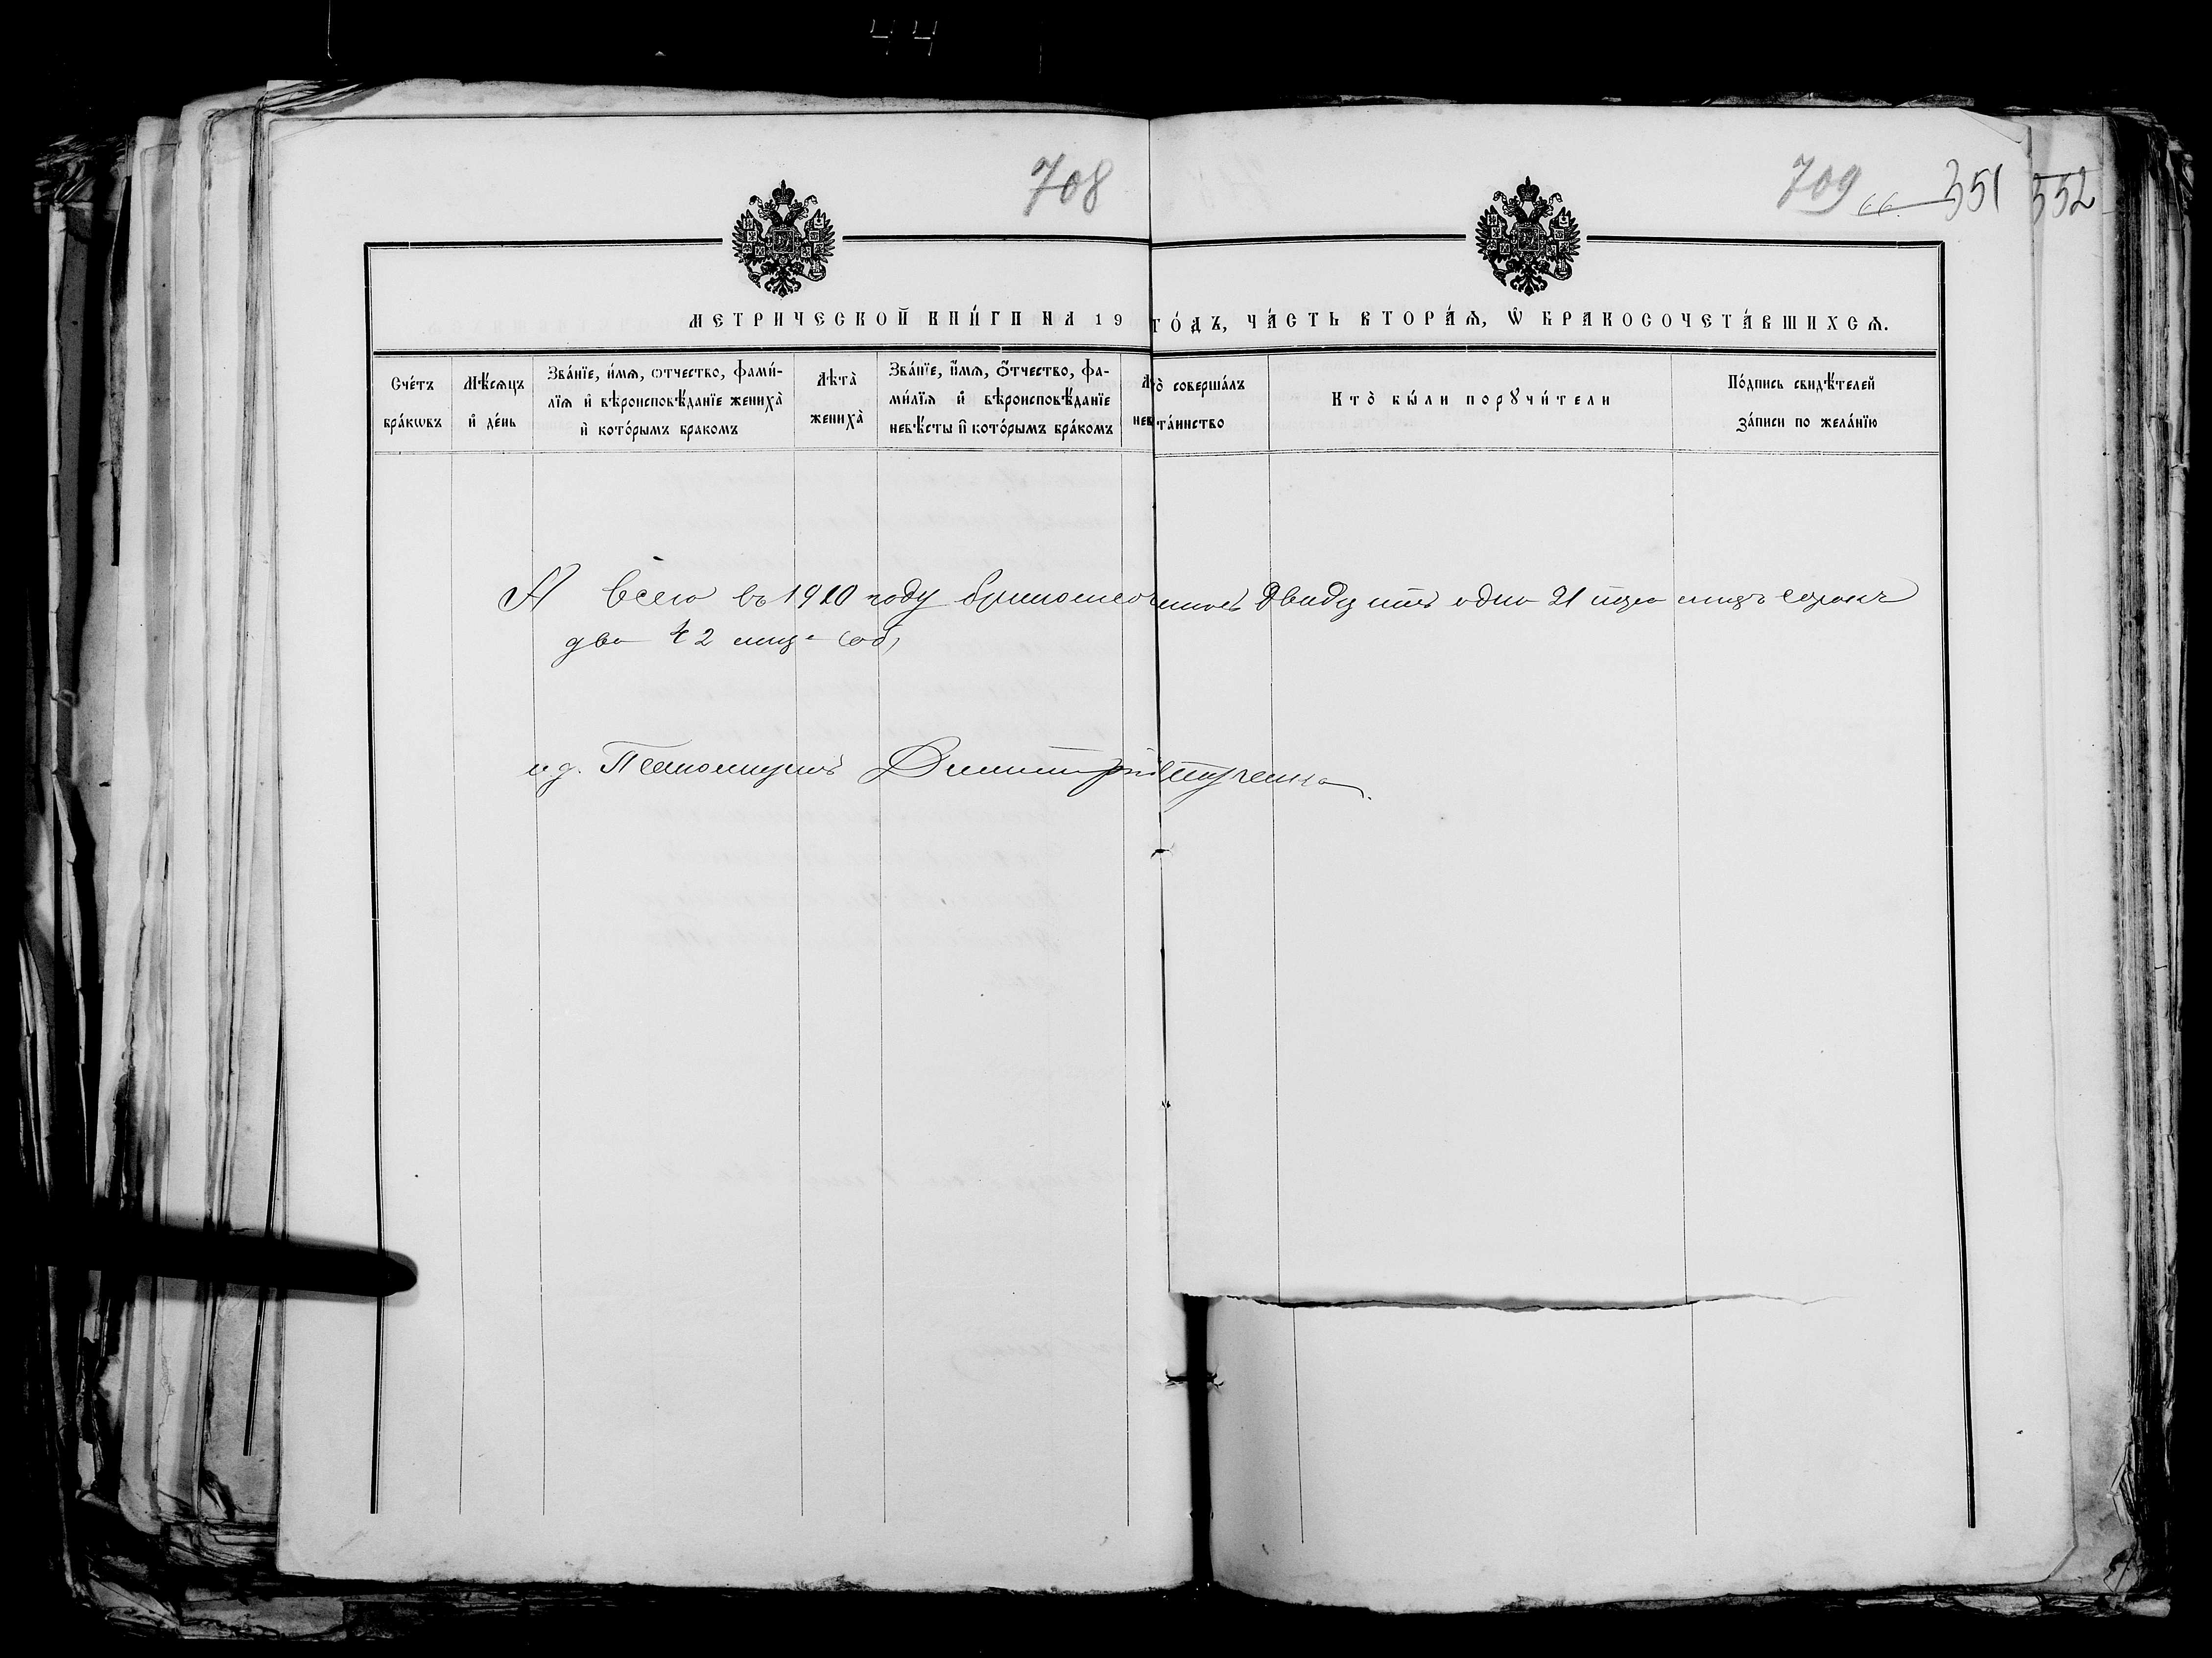 44
708
709 66. 351 352
МЕТРИЧЕСКОЙ КНИ́ГИ НА 19 ГО́ДЪ, ЧА́СТЬ ВТОРА́Ѧ, Ѡ БРАКОСОЧЕТА́ВШИХСѦ.
Сче́тъ
бра́кѡвъ
Мѣ́сѧцъ
и҆ де́нь
Зва́нїе, и҆́мѧ, ѻтчество, фами́-
лїѧ и҆ вѣроисповѣ́данїе жениха̀
и҆ кото́рымъ бракомъ
Лѣта̀
жениха̀
Зва́нїе, и҆́мѧ, ѻ҆́тчество, фа-
ми́лїѧ и҆ вѣроисповѣ́данїе
невѣ́сты и҆ кото́рымъ бра́комъ
Лѣ
нев
о̀ соверша́лъ
та́инство
Кто̀ бы́ли порꙋчи́тели
По́дпись свидѣ́телей
за́писи по жела́нїю
А всего въ 1910 году двадцать одно 21 сорокъ
два 42
и. д. Псаломщикъ Димитрій